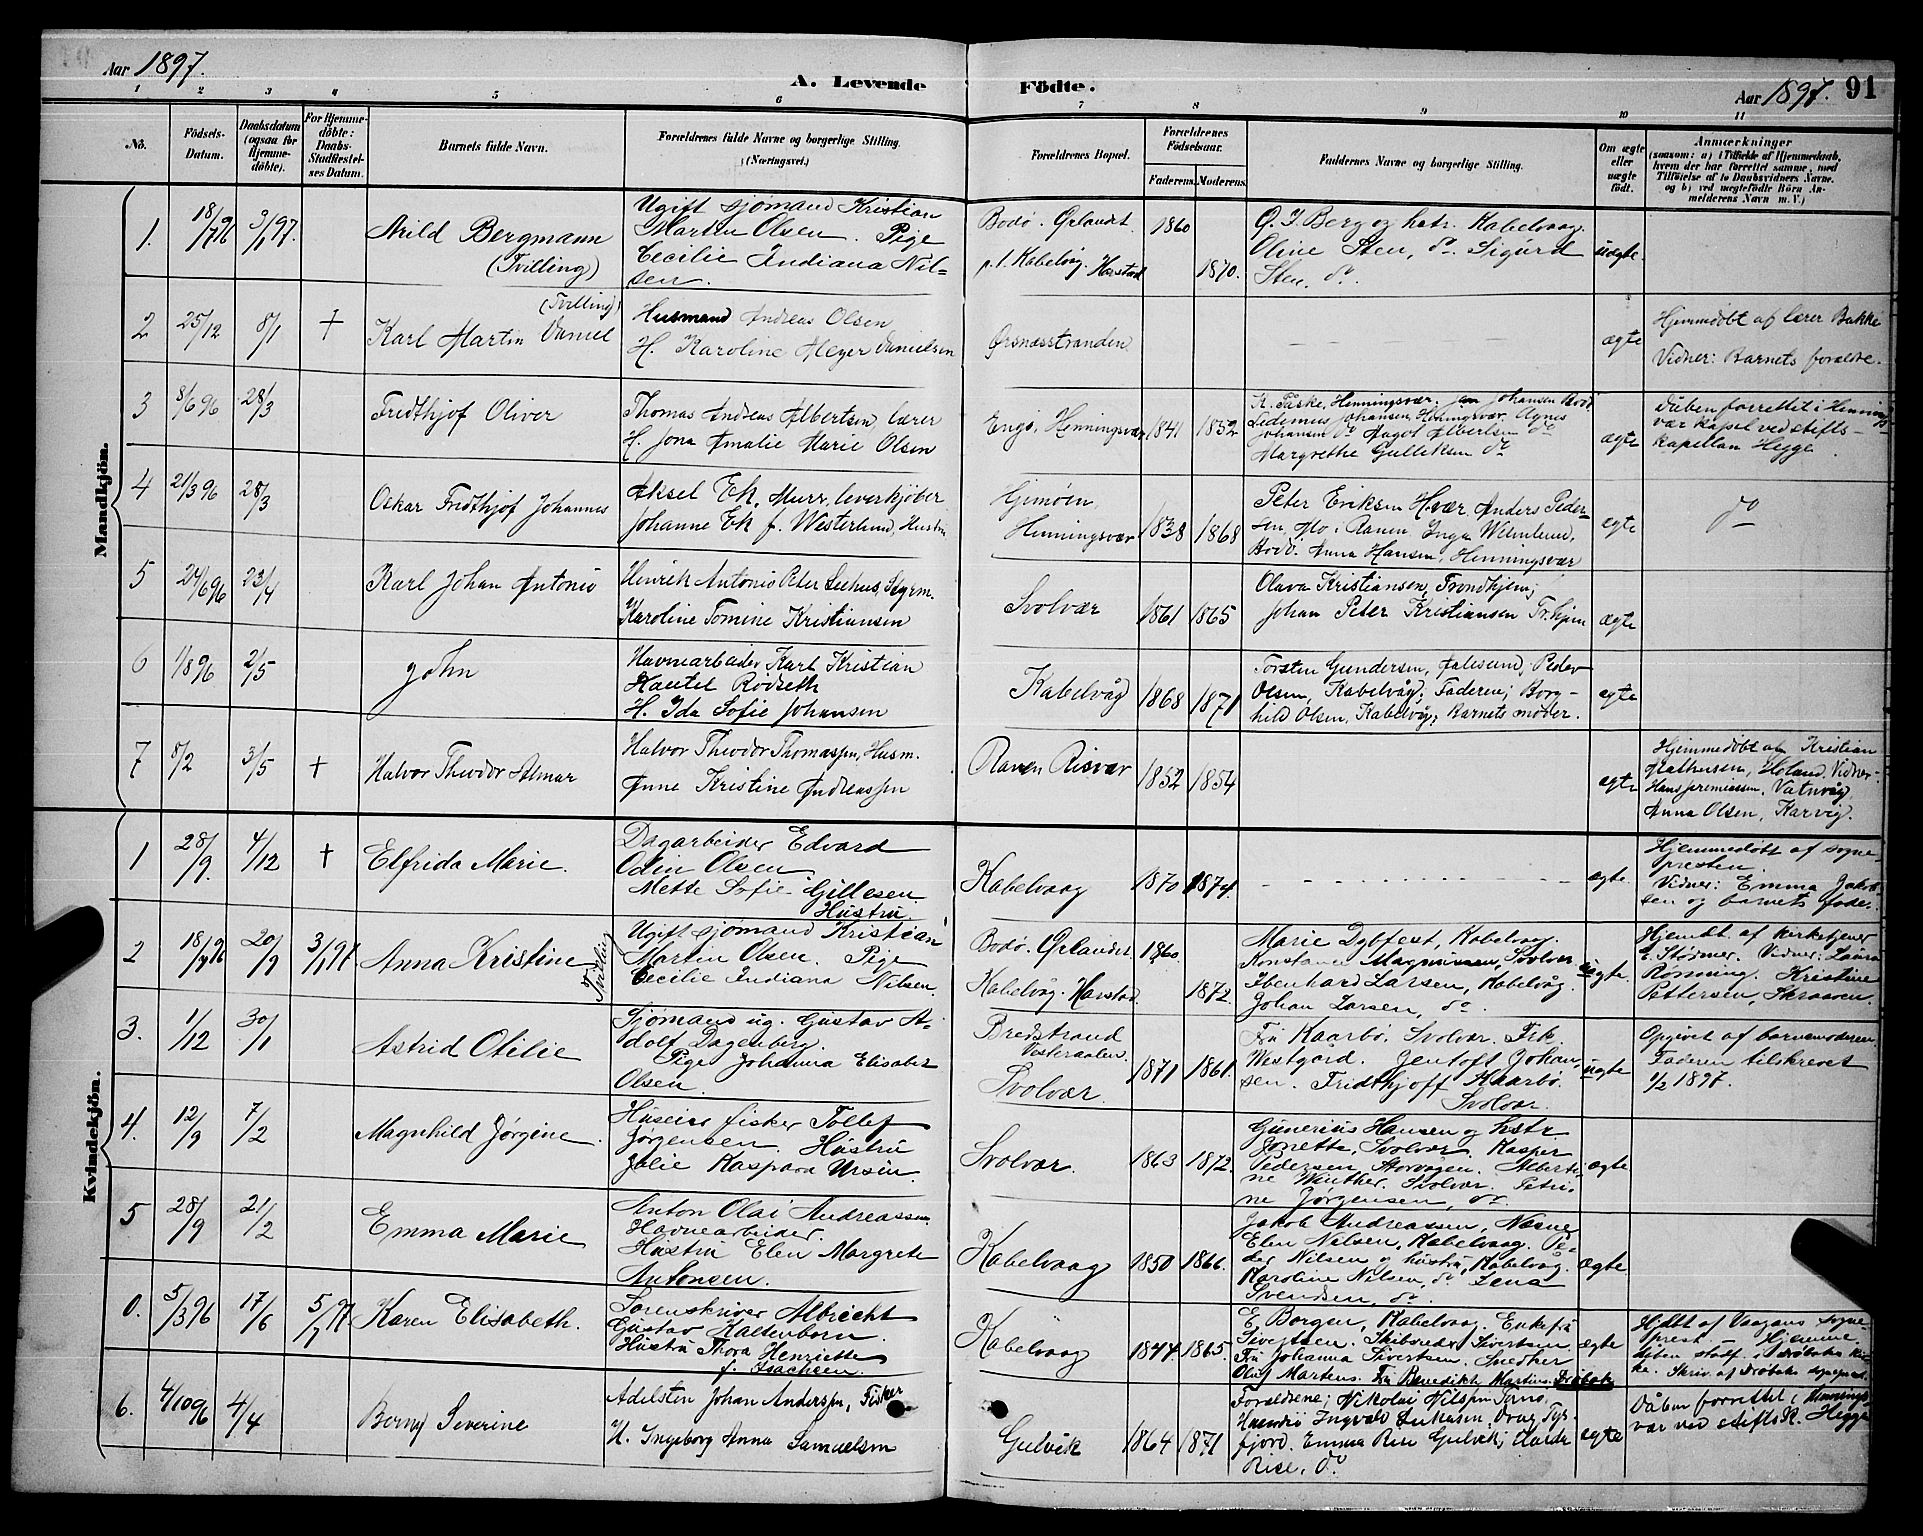 Aar 1897.
A. Levende Födte.
Aar 1897. 91
1 2 3 4 5 6 7 8 9 10 11
No. Födsels-Datum. Daabsdatum (ogsaa for Hjemmedöbte). For Hjemmedöbte: Daabs-Stadfæstelses Datum. Barnets fulde Navn. Forældrenes fulde Navne og borgerlige Stilling. (Næringsvei.) Forældrenes Bopæl. Forældrenes Födselsaar. Faderens. Moderens. Faddernes Navne og borgerlige Stilling. Om ægte eller uægte födt. Anmærkninger (saasom: a) i Tilfælde af Hjemmedaab, hvem der har forrettet samme, med Tilföielse af to Daabsvidners Navne, og b) ved uægtefödte Börn Anmelderens Navn m. V.)
Mandkjön.
1. 18/7 96 3/1 97. Arild Bergmann (Tvilling)
Ugift sjömand Kristian
Martin Olsen. Pige
Cecilie Indiana Nilsen.
Bodö. Ørlandet
p.t. Kabelvåg. Harstad
1860 1870.
O. J. Berg og hstr. Kabelvaag.
Oline Sten, do. Sigurd
Sten, do.
uægte.
2 25/12 8/1 + Karl Martin Daniel (Tvilling)
Husmand Andreas Olsen
H. Karoline Meyer Danielsen
Ørsnæsstranden
ægte
Hjemmedöbt af lærer Bakke
Vidner: Barnets forældre.
3 8/6 96 28/3 Fredthjof Oliver
Thomas Andreas Albertsen, lærer
H. Jona Amalie Marie Olsen
Engö, Henningsvær 1841 1852
K. Påske, Henningsvær. Johansen Bodö
Johansen, Henningsvær, Agnes
Johansen do Aagot Albertsen do
Margrethe Gulleksen do
ægte
Dåben forrettet i Hennings-
vær kapel ved stifts-
kapellan Hegge
4 21/3 96 28/3 Oskar Fredthjof Johannes
Aksel Ek, Murer, leverkjöber
Johanne Ek f. Westerlund, Hustru
Gjmöen,
Henningsvær 1838 1868
Peter Eriksen H.vær, Anders Peder-
sen, Mo i Ranen, Inga
Bodö. Anna Hansen, Henningsvær
ægte do
5 24/6 96 23/4 Karl Johan Antonio
Henrik Antonio Peter Seehus, Styrm.
Karoline Tomine Kristiansen
Svolvær 1861 1865
Olava Kristiansen, Trondhjem;
Johan Peter Kristiansen Tr.hjem
ægte
6 1/8 96 2/5 John
Havnearbeider Karl Kristian
Hantel Rödseth
H. Ida Sofie Johansen
Kabelvåg 1868 1871
Torsten Gundersen, Aalesund; Peder
Olsen, Kabelvåg; Faderen; Borg-
hild Olsen, Kabelvåg; Barnets moder.
ægte
7 5/2 3/5 + Halvor Theodor Almar
Halvor Theodor Thomassen, Husm.
Anne Kristine Andreassen
Risvær 1852 1854
ægte
Hjemmedöbt af Kristian
Mathiesen, Holand. Vidner:
Hans Jeremiassen, Vatnvåg,
Anna Olsen, Karvig.
Kvindekjön.
1 28/9. 4/12 + Elfrida Marie.
Dagarbeider Edvard
Odin Olsen.
Mette Sofie Gillesen
Hustru.
Kabelvaag 1870 1874.
ægte.
Hjemmedöbt af sogne-
presten.
Vidner: Emma Jakob-
sen og barnets fader.
2 18/7 96 20/9 3/1 97 Anna Kristine Tvilling
Ugift sjömand Kristian
Martin Olsen. Pige
Cecilie Indiana Nilsen.
Bodö. Ørlandet
Kabelvåg. Harstad
1860. 1872.
Marie Dybfest, Kabelvaag.
Konstance Magnussen, Svolvær
Ibenhard Larsen, Kabelvåg.
Johan Larsen, do.
uægte.
Hjemdt. af kirketjener
E. Störmer. Vidner: Laura
Rönning. Kristine
Pettersen, Skraaven.
3. 1/12 30/1 Astrid Otilie
Sjömand ug. Gustav A-
dolf Dagenberg.
Pige Johanna Elisabet
Olsen.
Bredstrand
Vesteraalen.
Svolvær. 1871 1861.
Fru Kaarbö. Svolvær. Frk.
Westgård. Jentoft Johan-
sen. Fridthjoff Kaarbö.
Svolvær.
uægte
Opgivet af barnemoderen.
Faderen tilskrevet
1/2 1897.
4. 12/9 7/2 Magnhild Jörgine.
Huseier fisker Tollef
Jörgensen. Hustru
Julie Kaspara Ursin.
Svolvær. 1863 1872.
Gunerius Hansen og hstr.
Jonette, Svolvær. Kasper
Pedersen Storvågen. Alberti-
ne Winther. Svolvær. Petri-
ne Jörgensen, do.
ægte
5 28/9 21/2 Emma Marie
Anton Olai Andreassen.
Havnearbeider.
Hustru Elen Margrete
Antonsen.
Kabelvaag 1850 1866.
Jakob Andreassen,
Elen Nilsen, Kabelvaag. Pe-
der Nilsen og hustru, Kabelvaag.
Karoline Nilsen, do. Lena
Svendsen, do.
ægte
0. 5/3 96 17/6 5/7 97 Karen Elisabeth.
Sorenskriver Albrecht
Gustav Kaltenborn.
Hustru Thora Henriette
f. Isachsen.
Kabelvaag 1844. 1865.
E. Borgen, Kabelvaag. Enkefru
Sivertsen. Skibsreder Sivertsen
Fru Johanna Sivertsen. Snedker
Oluf Martens. Fru Benedikte Martens. Dröbak
ægte
Hjdt af Vaagans sogne-
prest. — Hjemme-
dåben stadf. i Dröbaks kir-
ke. Skriv. af Dröbaks sogneprest.
6. 4/10 96 4/4 Borny Severine
Adelsten Johan Anderssen, Fisker
H. Ingeborg Anna Samuelsen
Gulvik 1864 1871
Forældrene; Nikolai Nilssen
Ingvald Lukasen, Drag, Tys-
fjord. Emma Rise Gulvik;
Rise, do
ægte
Dåben forrettet i Hennings-
vær ved stiftsk. Hegge